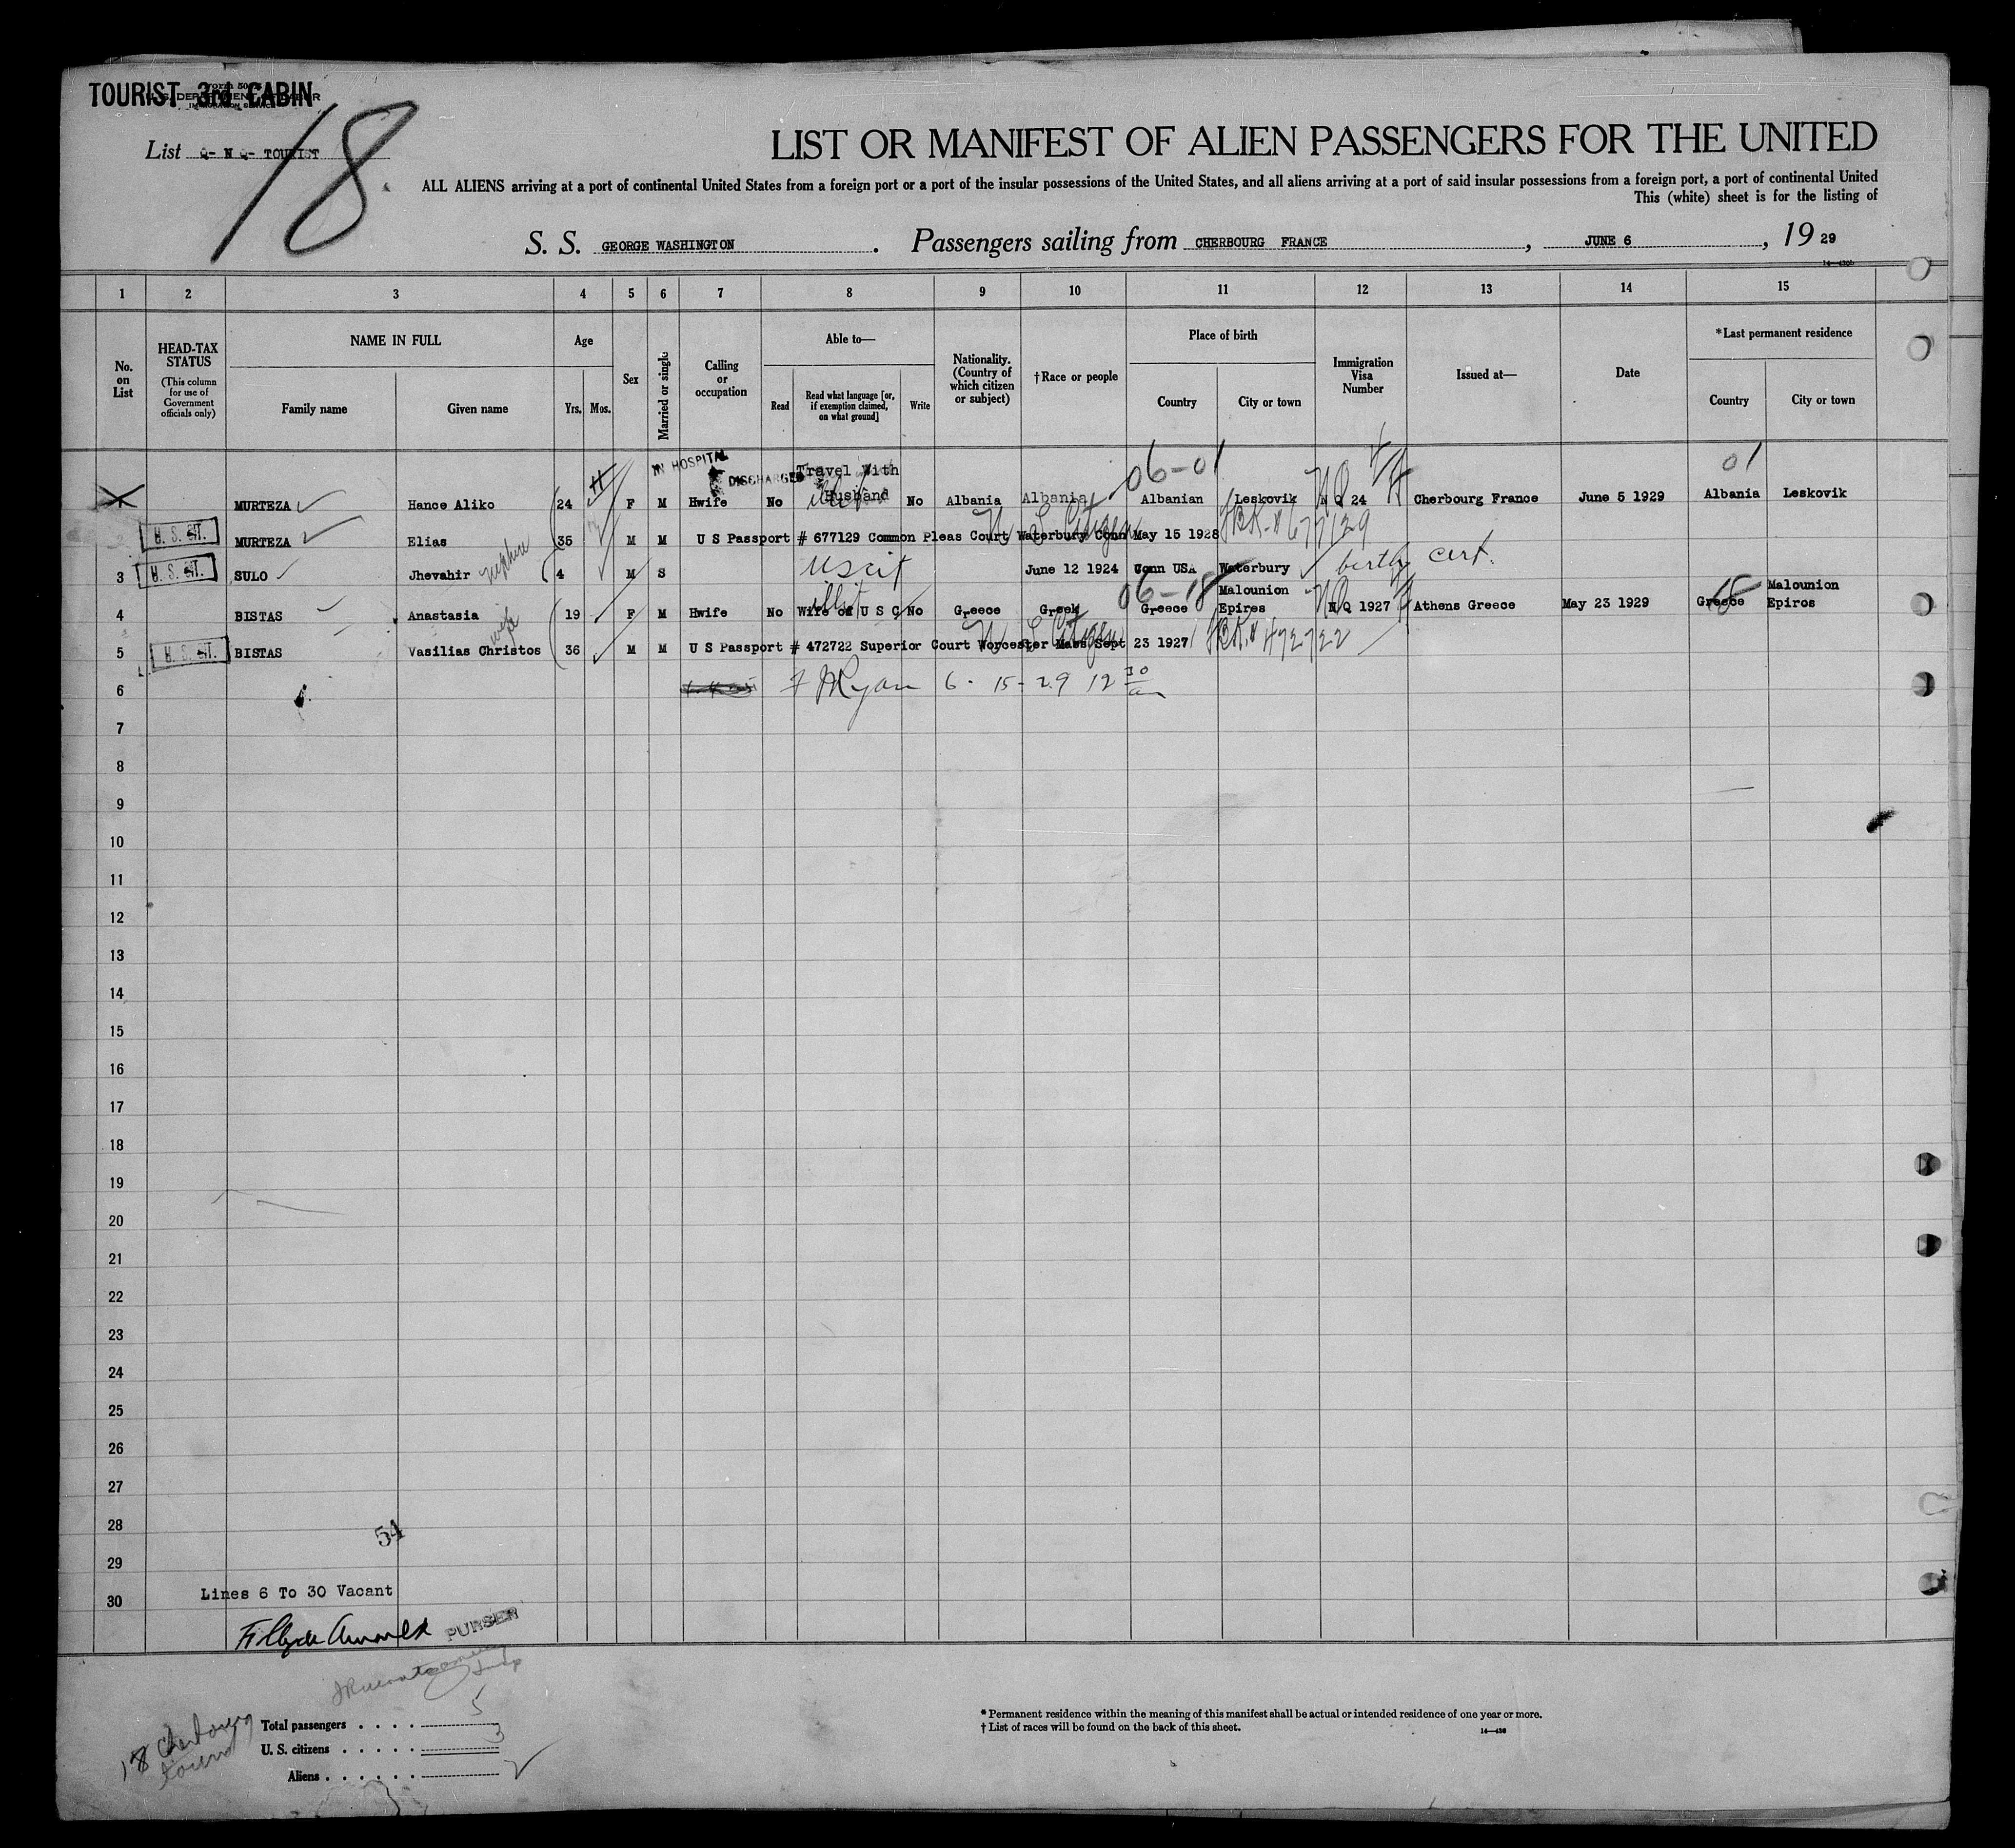 TOURIST 3rd CABIN
List Q- N Q- TOURIST
18
LIST OR MANIFEST OF ALIEN PASSENGERS FOR THE UNITED
ALL ALIENS arriving at a port of continental United States from a foreign port or a port of the insular possessions of the United States, and all aliens arriving at a port of said insular possessions from a foreign port, a port of continental United
This (white) sheet is for the listing of
S. S. GEORGE WASHINGTON . Passengers sailing from CHERBOURG FRANCE , JUNE 6 , 19 29
1 2 3 4 5 6 7 8 9 10 11 12 13 14 15
No. on List
HEAD-TAX STATUS (This column for use of Government officials only)
NAME IN FULL
Family name Given name
Age
Yrs. Mos.
Sex
Married or single
Calling or occupation
Able to—
Read
Read what language [or, if exemption claimed, on what ground]
Write
Nationality. (Country of which citizen or subject)
†Race or people
Place of birth
Country City or town
Immigration Visa Number
Issued at—
Date
*Last permanent residence
Country City or town
IN HOSPITAL
DISCHARGED
Travel With
06-01
01
MURTEZA Hance Aliko 24 F M Hwife No Husband No Albania Albania Albanian Leskovik N Q 24 Cherbourg France June 5 1929 Albania Leskovik
U. S. CIT. MURTEZA Elias 35 M M U S Passport # 677129 Common Pleas Court Waterbury Conn May 15 1928
U S Citizen 677129
3 U. S. CIT. SULO Jhevahir nephew 4 M S US cit June 12 1924 Conn USA Waterbury birth cert.
06-18
18
4 BISTAS Anastasia wife 19 F M Hwife No Wife of U S C No Greece Greek Greece Malounion Epires N Q 1927 Athens Greece May 23 1929 Greece Malounion Epiros
5 U. S. CIT. BISTAS Vasilias Christos 36 M M U S Passport # 472722 Superior Court Worcester Mass Sept 23 1927
U S Citizen 472722
6 Ryan 6-15-29 12 30 am
7
8
9
10
11
12
13
14
15
16
17
18
19
20
21
22
23
24
25
26
27
28
54
29
Lines 6 To 30 Vacant
30
PURSER
Total passengers . . . . 5
U. S. citizens . . . . . 3
Aliens . . . . . . 2
18 Cherbourg
* Permanent residence within the meaning of this manifest shall be actual or intended residence of one year or more.
† List of races will be found on the back of this sheet.